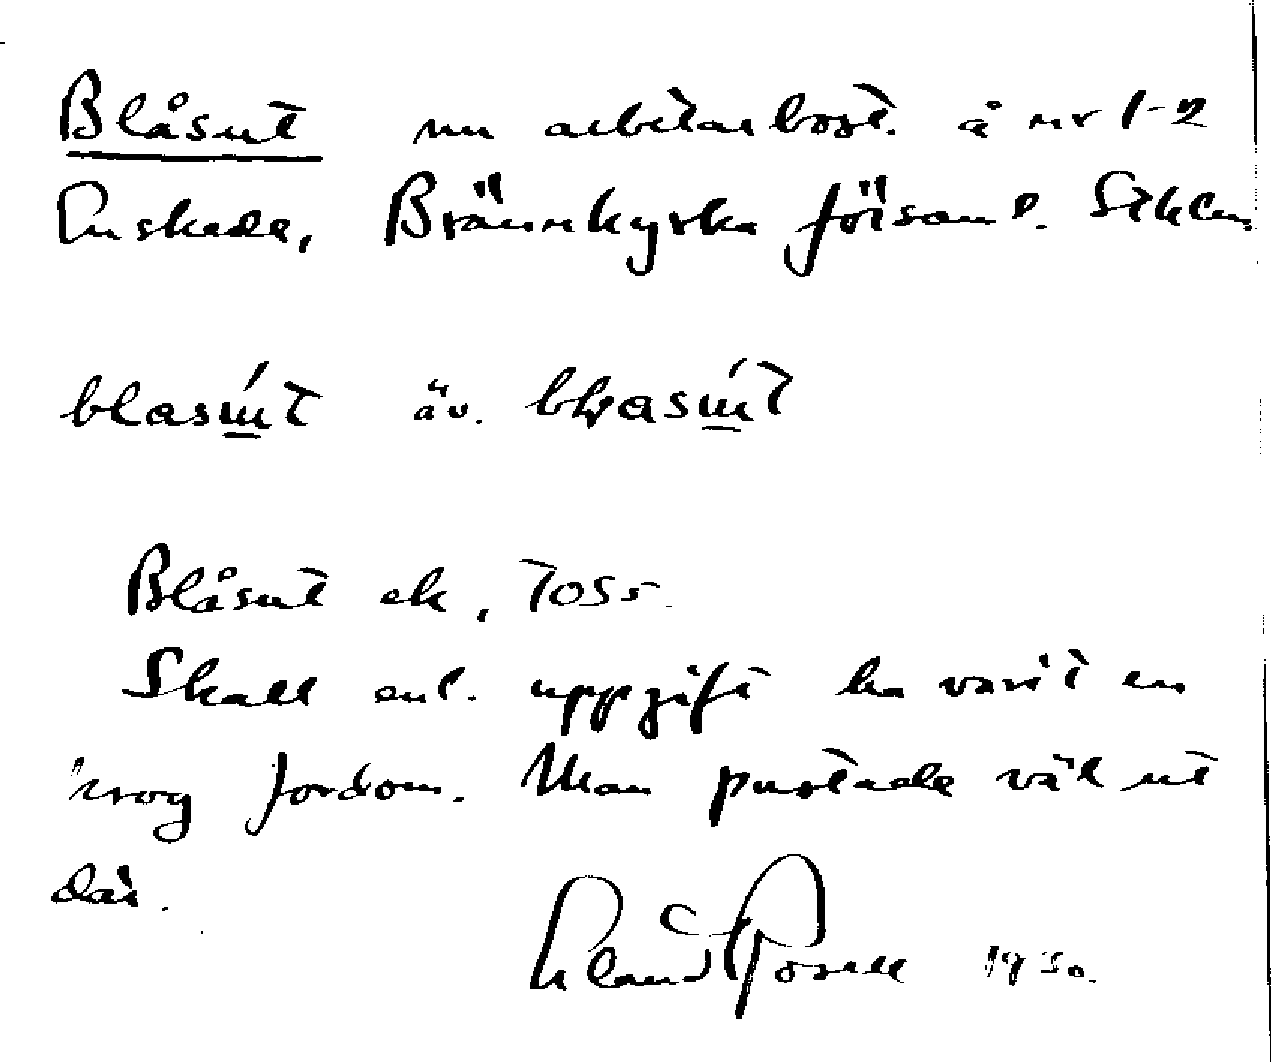 Blåsut nu arbetarbost. å nr 1-2
Enskede, Brännkyrka förs. Sthlm
blasut äv. blyasut
Blåsut ek, 7055.
Skall enl. uppgift ha varit en
krog fordom. Man pustade väl ut
där.
1930.